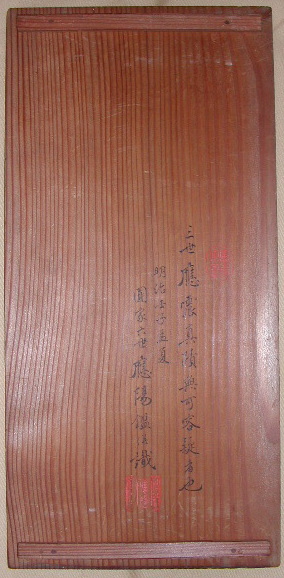 三世應震真蹟無可容疑者也
明治壬子孟夏
圓家六世應陽鑑自識